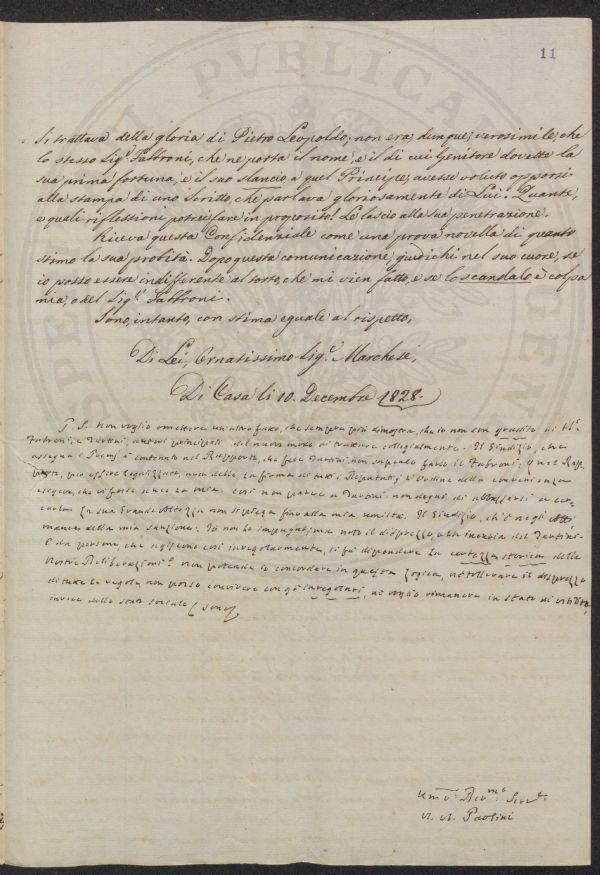 11
Si trattava della gloria di Pietro Leopoldo; non era, dunque, verosimile, che
lo stesso Sig.r Fabbroni, che ne porta il nome, e il di cui Genitore dovette la
sua prima fortuna, e il suo slancio a quel Principe, avesse voluto opporsi
alla stampa di uno Scritto, che parlava gloriosamente di Lui. Quante,
e quali riflessioni potrei fare in proposito! Le lascio alla sua penetrazione.
Riceva questa Confidenziale come una prova novella di quanto
stimo la sua probità. Dopo questa comunicazione, giudichi nel suo cuore, se
io posso essere indifferente al torto, che mi vien fatto, e se lo scandalo è colpa
mia, o del Sig.r Fabbroni.
Sono, intanto, con stima eguale al rispetto,
Di Lei, Ornatissimo Sig.r Marchese,
Di Casa li 10. Decembre 1828.
P. S. Non voglio omettere un altro fatto, che sempre più dimostra, che io non son gradito ai
Fabroni, e Tartini, autori principali del nuovo modo di trattare collegialmente. Il Giudizio, che
assegna i Premj è contenuto nel Rapporto, che fece Tartini non sapendo farlo il Fabroni; e nel Rap
porto, poi esser legalizzato, colla firma di tutti i Deputati; è ordine della convenienza
esigeva, che vi fosse anco la mia. Così non parve a Tartini non degni di abbassarsi a cer-
carla. La sua Grande Altezza non si piega fino alla mia umiltà. Il Giudizio, ch'è negli Atti
mancò della mia sanzione. Io non lo impugno; ma noto il disprezzo, e la inerzia del Tartini.
E da persone, che agiscono così irregolarmente, si fa dipendere la certezza storica delle
nostre Deliberazioni? Non potendo io concordare in questa Logica, nè tollerare il disprezzo
di tutte le regole, non posso convivere con gl'irregolari, nè voglio rimanere in stato di
invece dello stato sociale
Um.o Dev.mo Serv.e
A. A. Paolini